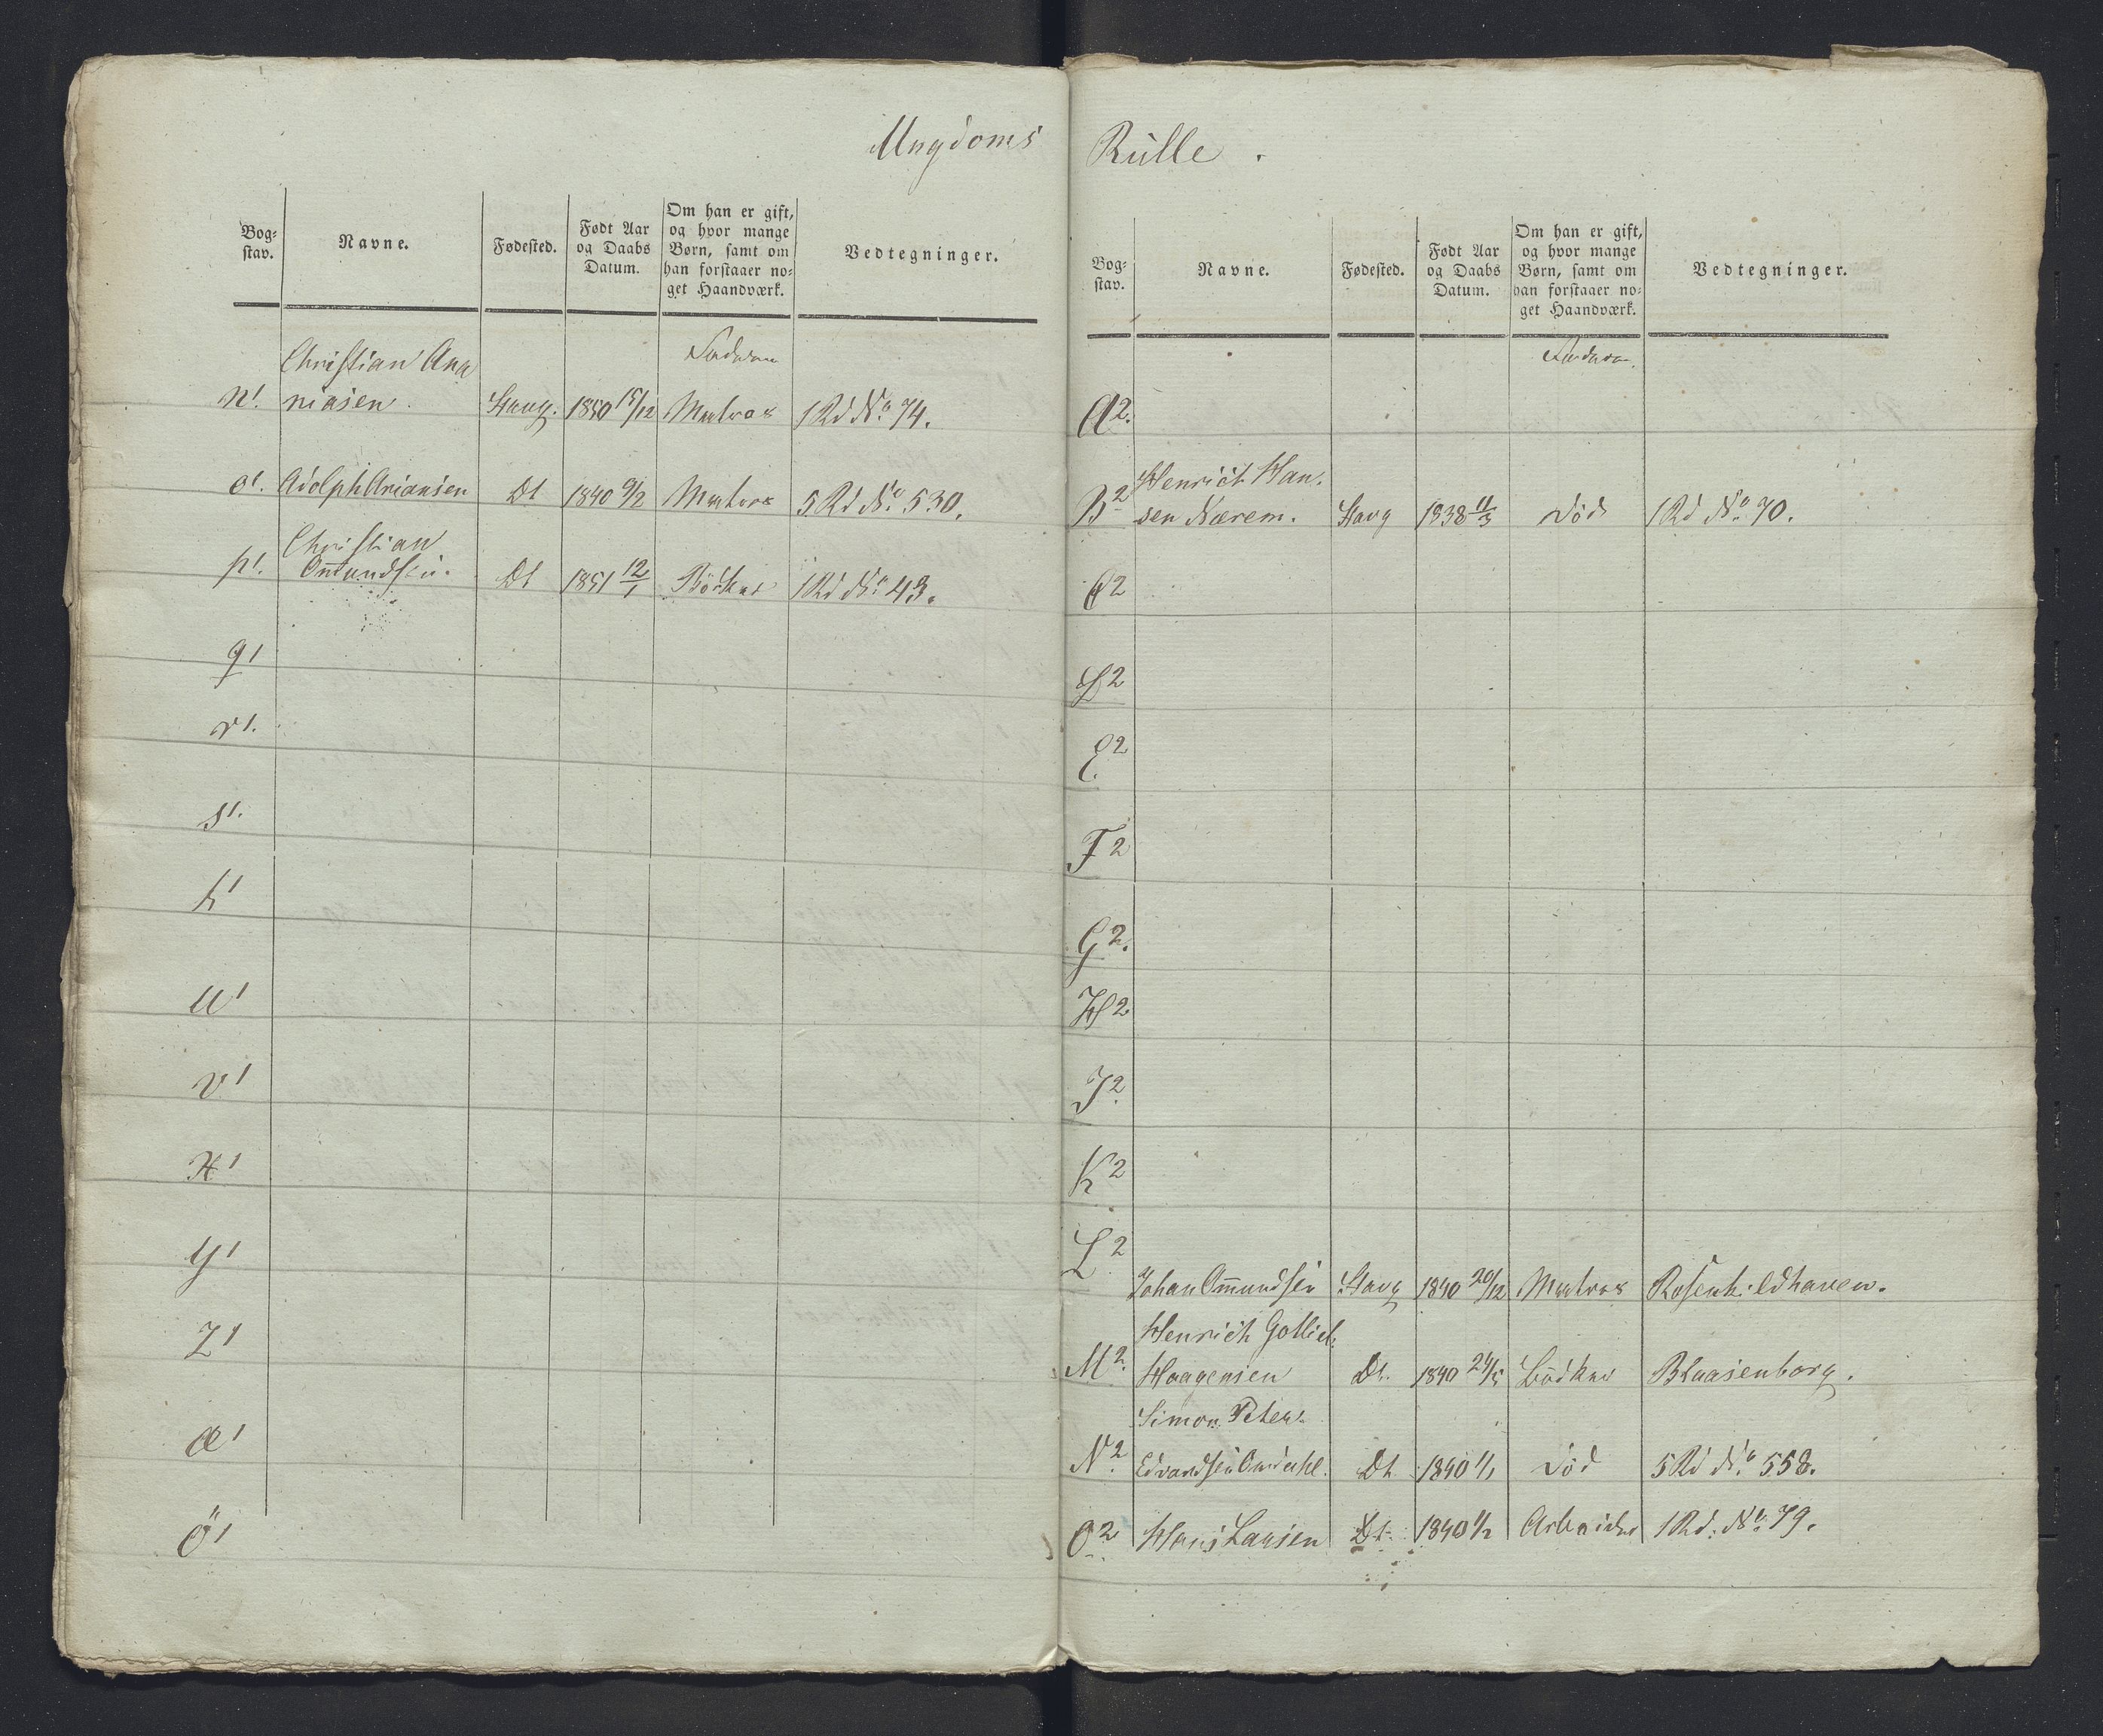 Ungdoms
Bog-
stav.
Navne.
Fødested.
Født Aar
og Daabs
Datum.
Om han er gift,
og hvor mange
Børn, samt om
han forstaaer no-
get Haandværk.
Vedtegninger.
Christian Ana
Faderen
n1. niasen. Stavg. 1850 15/12 Matros 1 Rd No. 74.
o1. Adolph Ariansen Dt 1840 9/2 Matros 5 Rd No. 530.
Christian
p1. Ommundsen. Dt 1851 12/1 Bødker 1 Rd No. 43.
q1
r1.
s1.
t1
u1
v1
x1
y1
z1
æ1
ö1
Rulle.
Bog-
stav.
Navne.
Fødested.
Født Aar
og Daabs
Datum.
Om han er gift,
og hvor mange
Børn, samt om
han forstaaer no-
get Haandværk.
Vedtegninger.
Faderen.
A2.
Henrich Han-
B2 sen Nærem. Stavg 1838 11/3 Död 1 Rd No. 70.
C2
D2
E2.
F2
G2.
H2
J2.
K2
L2
Johan Ommundsen Stavg 1840 20/12 Matros Rosenkildhaven.
Henrich Gotlieb
M2. Haagensen Dt. 1840 24/5 Bödker Blaasenborg.
Simon Peter
N2. Edvardsen Dt 1840 1/1 Död 5 Rd No. 558.
O2 Hans Larsen Dt. 1840 1/2 Arbeider 1 Rd. No. 79.